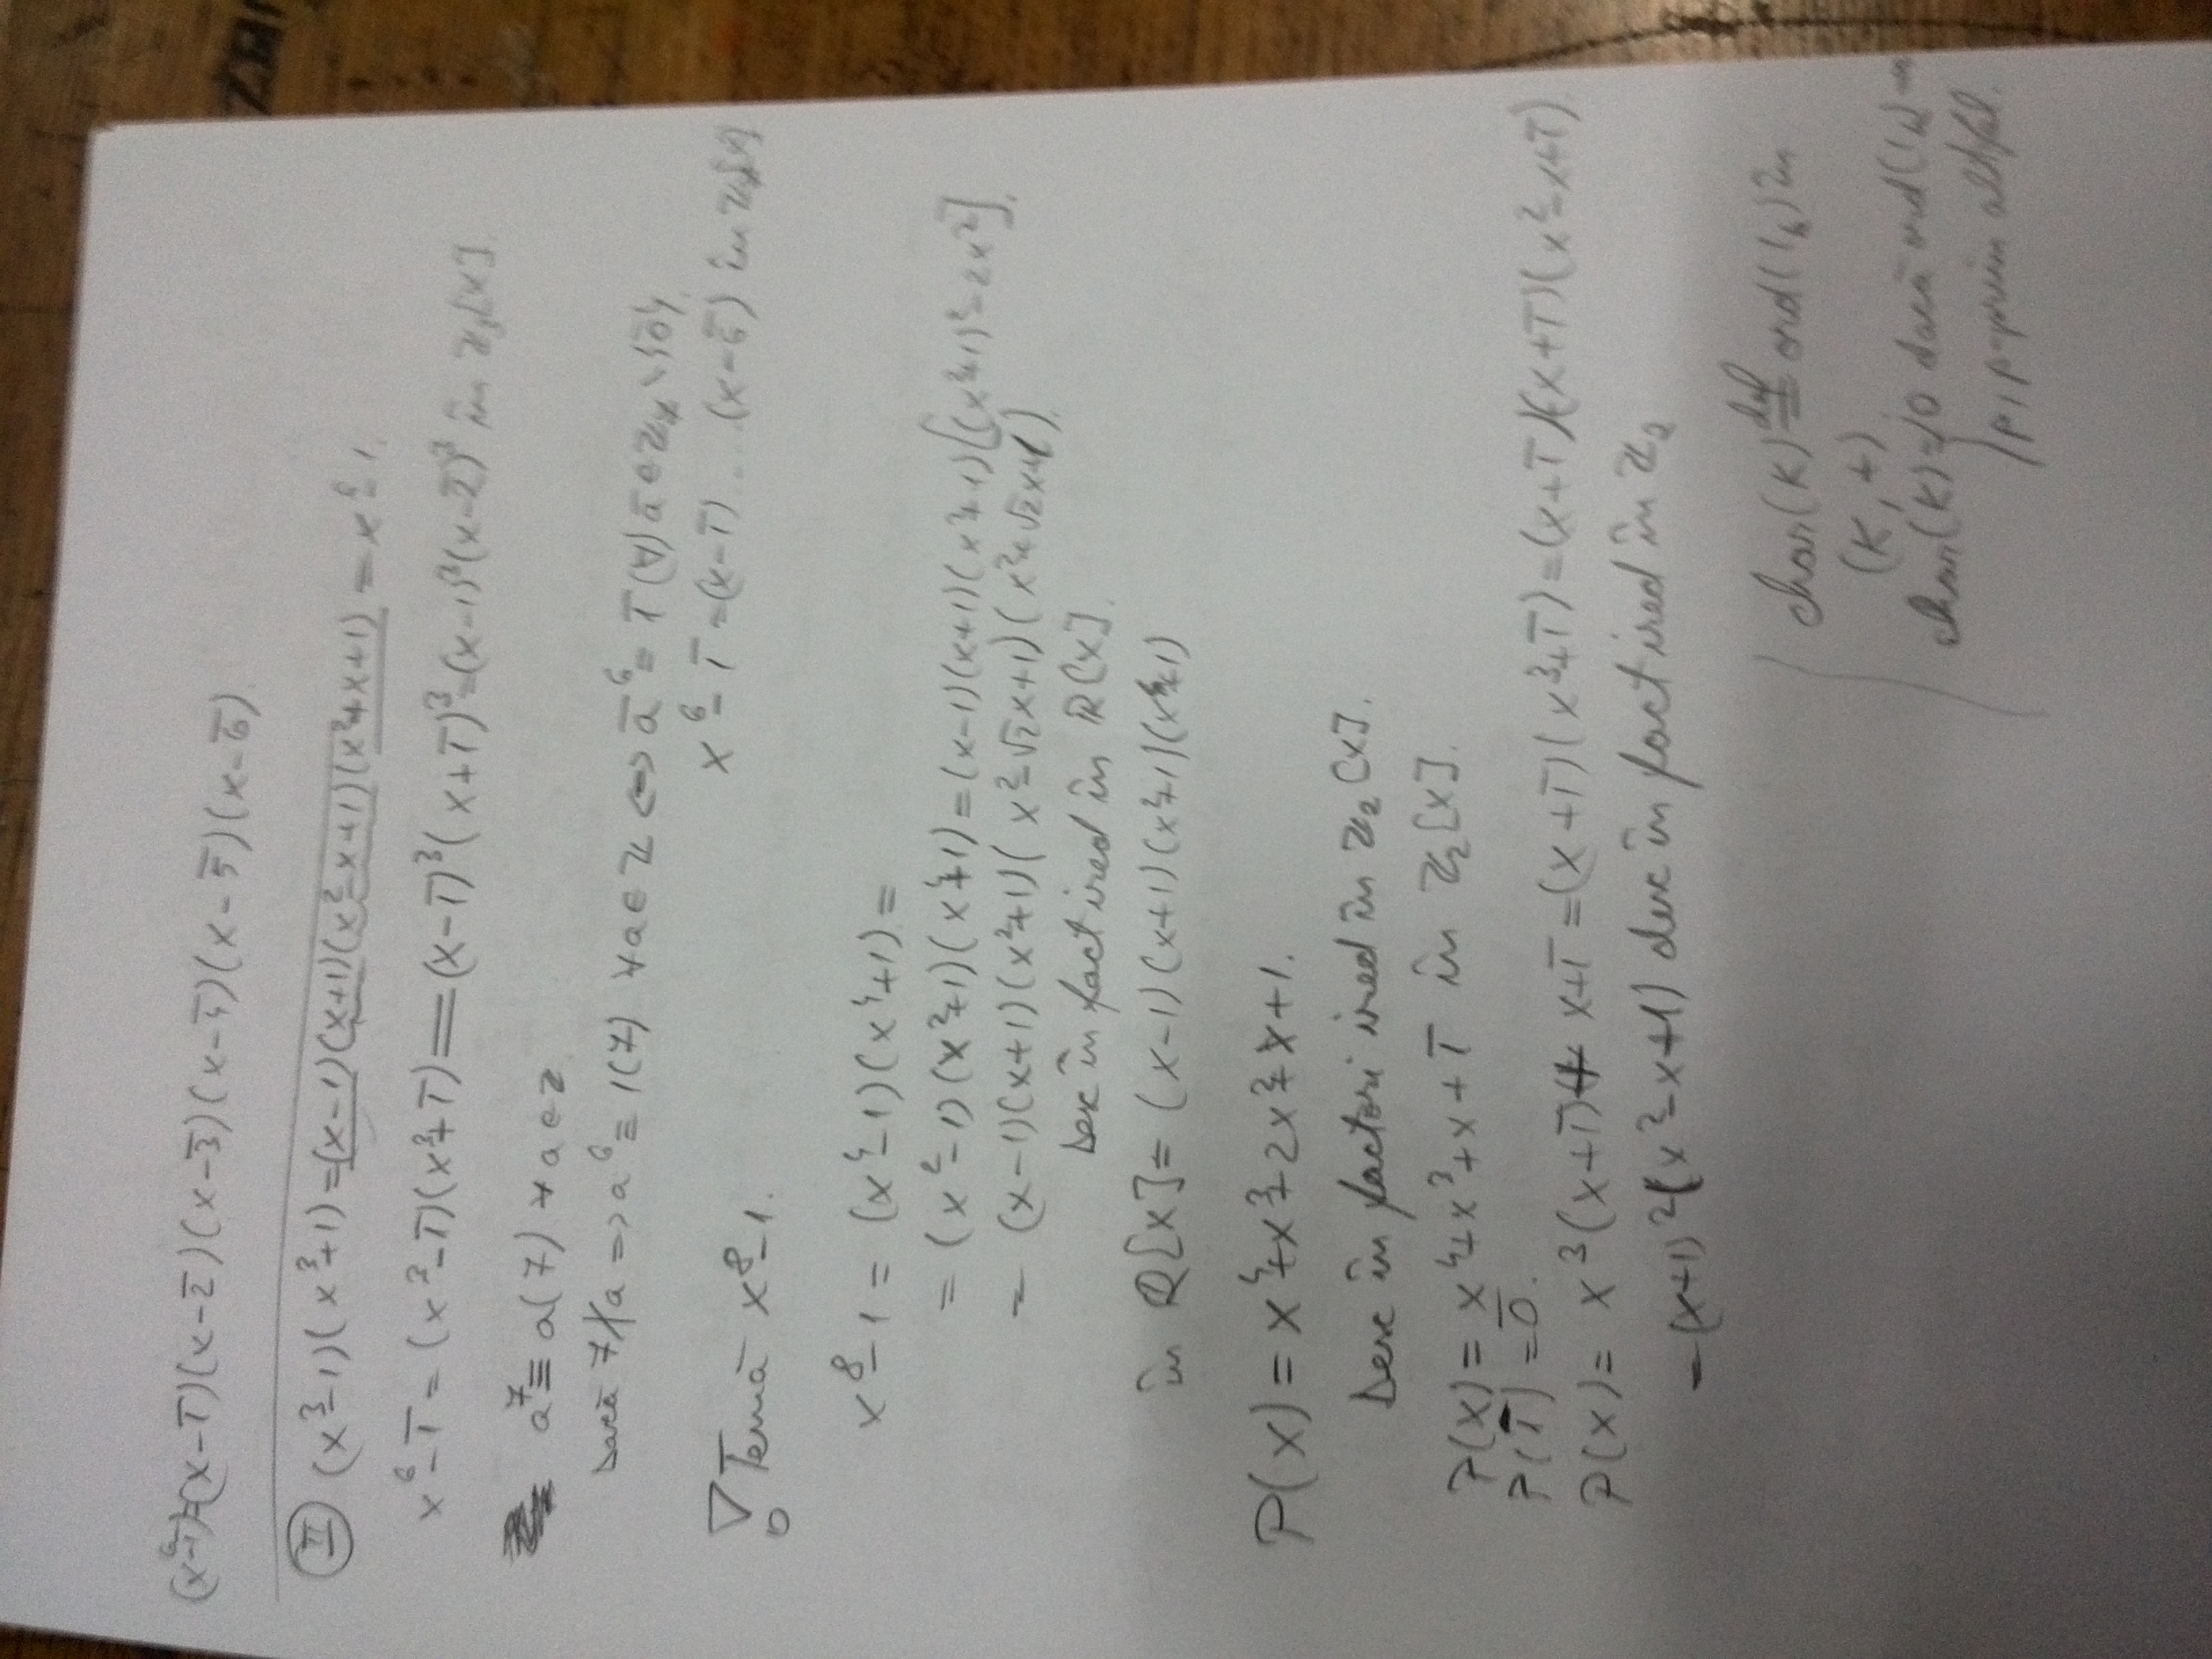 (x⁶-1̄)=(x-1̄)(x-2̄)(x-3̄)(x-4̄)(x-5̄)(x-6̄).
II (x³-1)(x³+1)=(x-1)(x+1)(x²-x+1)(x²+x+1)=x⁶-1.
x⁶-1̄=(x³-1̄)(x³+1̄)=(x-1̄)³(x+1̄)³=(x-1)³(x-2̄)³ în Z₃[x].
a⁷≡a(7) ∀a∈Z
Dacă 7∤a => a⁶≡1(7) ∀a∈Z ⇔ ā⁶=1̄ (∀) ā∈Z₇\{0̄}
x⁶-1̄=(x-1̄)...(x-6̄) în Z₇[x]
Temă x⁸-1.
x⁸-1=(x⁴-1)(x⁴+1)=
=(x²-1)(x²+1)(x⁴+1)=(x-1)(x+1)(x²+1)[(x²+1)²-2x²].
=(x-1)(x+1)(x²+1)(x²-√2x+1)(x²+√2x+1).
Desc în fact ired în R[x].
în Q[x]=(x-1)(x+1)(x²+1)(x⁴+1)
P(x)=x⁴+x³+2x²+x+1.
Desc în factori ired în Z₂[x].
P(x)=x⁴+x³+x+1̄ în Z₂[x].
P(1̄)=0̄.
P(x)=x³(x+1̄)+x+1̄=(x+1̄)(x³+1̄)=(x+1̄)(x+1̄)(x²-x+1̄).
=(x+1)²(x²-x+1) desc în fact ired în Z₂
char(K) def= ord(1ₖ) în
(K,+)
char(K)={0 dacă ord(1ₖ)=∞
p, p-prim altfel.